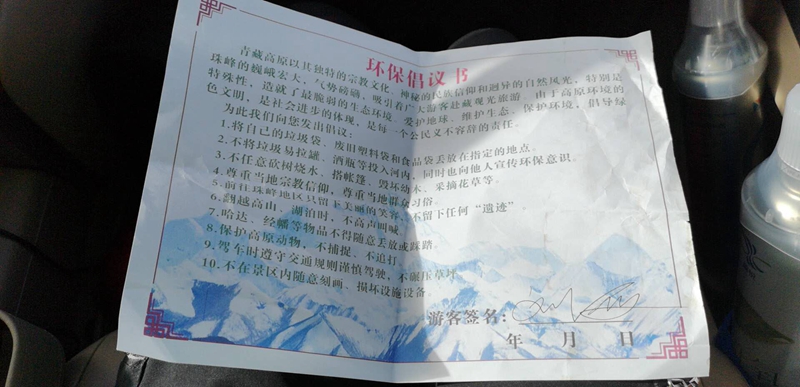 环保倡议书
青藏高原以其独特的宗教文化、神秘的民族信仰和迥异的自然风光，特别是
珠峰的巍峨宏大，气势磅礴，吸引着广大游客赴藏观光旅游。由于高原环境的
特殊性，造就了最脆弱的生态环境。爱护地球、维护生态、保护环境，倡导绿
色文明，是社会进步的体现，是每一个公民义不容辞的责任。
为此我们向您发出倡议：
1.将自己的垃圾袋、废旧塑料袋和食品袋丢放在指定的地点。
2.不将垃圾易拉罐、酒瓶等投入河内，同时也向他人宣传环保意识。
3.不任意砍树烧水、搭帐篷、毁坏幼木、采摘花草等。
4.尊重当地宗教信仰，尊重当地群众习俗。
5.前往珠峰地区只留下美丽的笑容，不留下任何“遗迹”。
6.翻越高山、湖泊时，不高声叫喊。
7.哈达、经幡等物品不得随意丢放或踩踏。
8.保护高原动物，不捕捉、不追打。
9.驾车时遵守交通规则谨慎驾驶，不碾压草坪
10.不在景区内随意刻画、损坏设施设备。
游客签名：
年 月 日